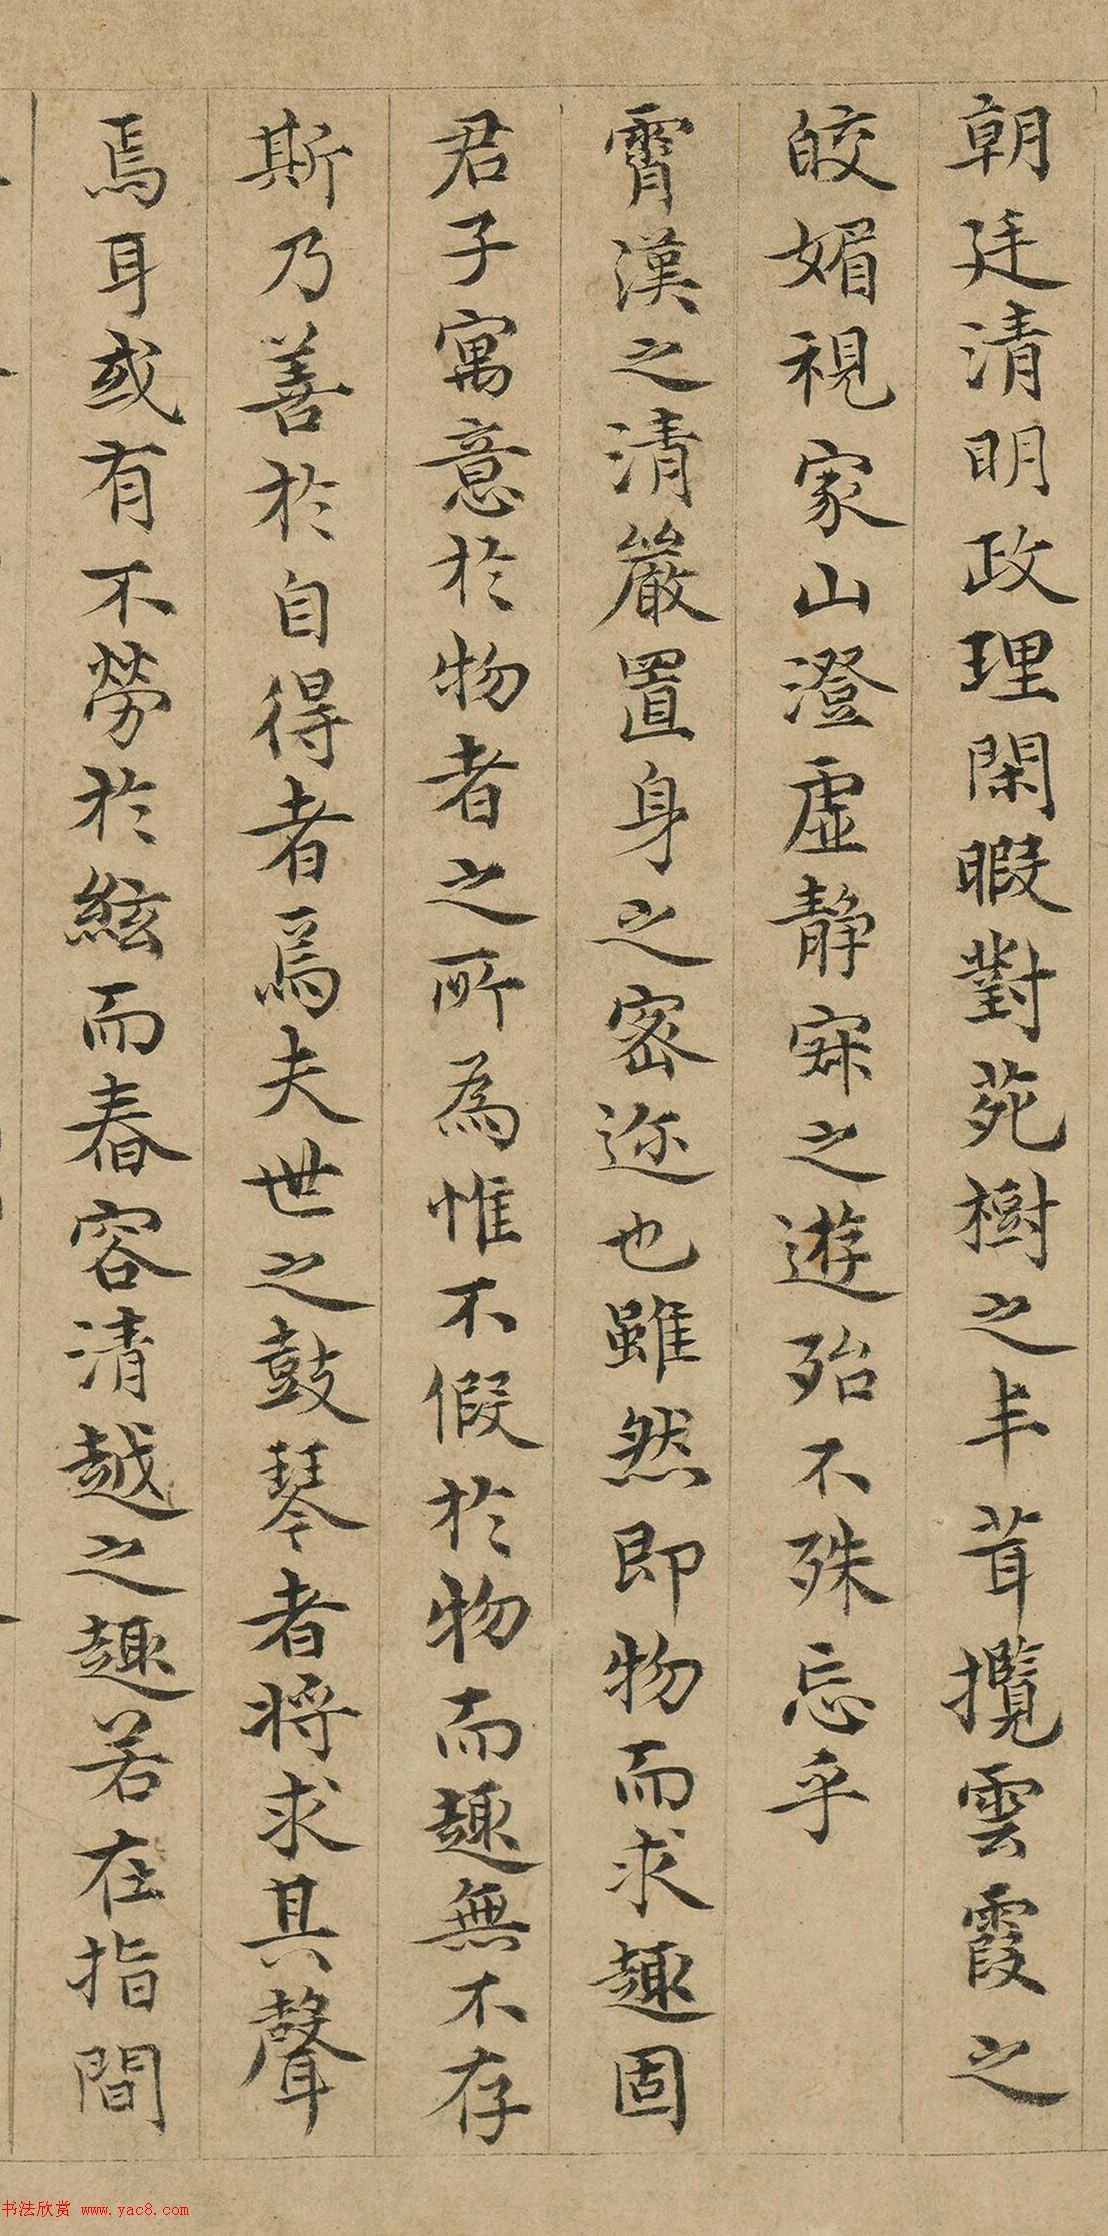 朝廷清明政理閑暇對苑樹之丰茸攬雲霞之
皎媚視家山澄虛靜寐之遊殆不殊忘乎
霄漢之清嚴置身之密迩也雖然即物而求趣固
君子寓意於物者之所為惟不假於物而趣無不存
斯乃善於自得者焉夫世之鼓琴者將求其聲
焉耳或有不勞於絃而舂容清越之趣若在指間
书法欣赏 www.yac8.com